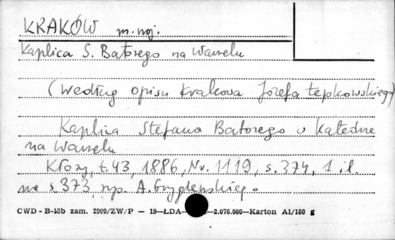 KRAKÓW m. woj.
Kaplica S. Batorego na Wawelu
(według opisu Krakowa Józefa Łepkowskiego)
Kaplica Stefana Batorego w katedrze
na Wawelu
Kłosy, t. 43, 1886, Nr. 1119, s. 374, 1 il.
na s 373 rys. A. Gryglewskiego.
CWD - B-15b zam. 2909/ZW/P — 19—ŁDA— —2.076.000—Karton A1/180 g